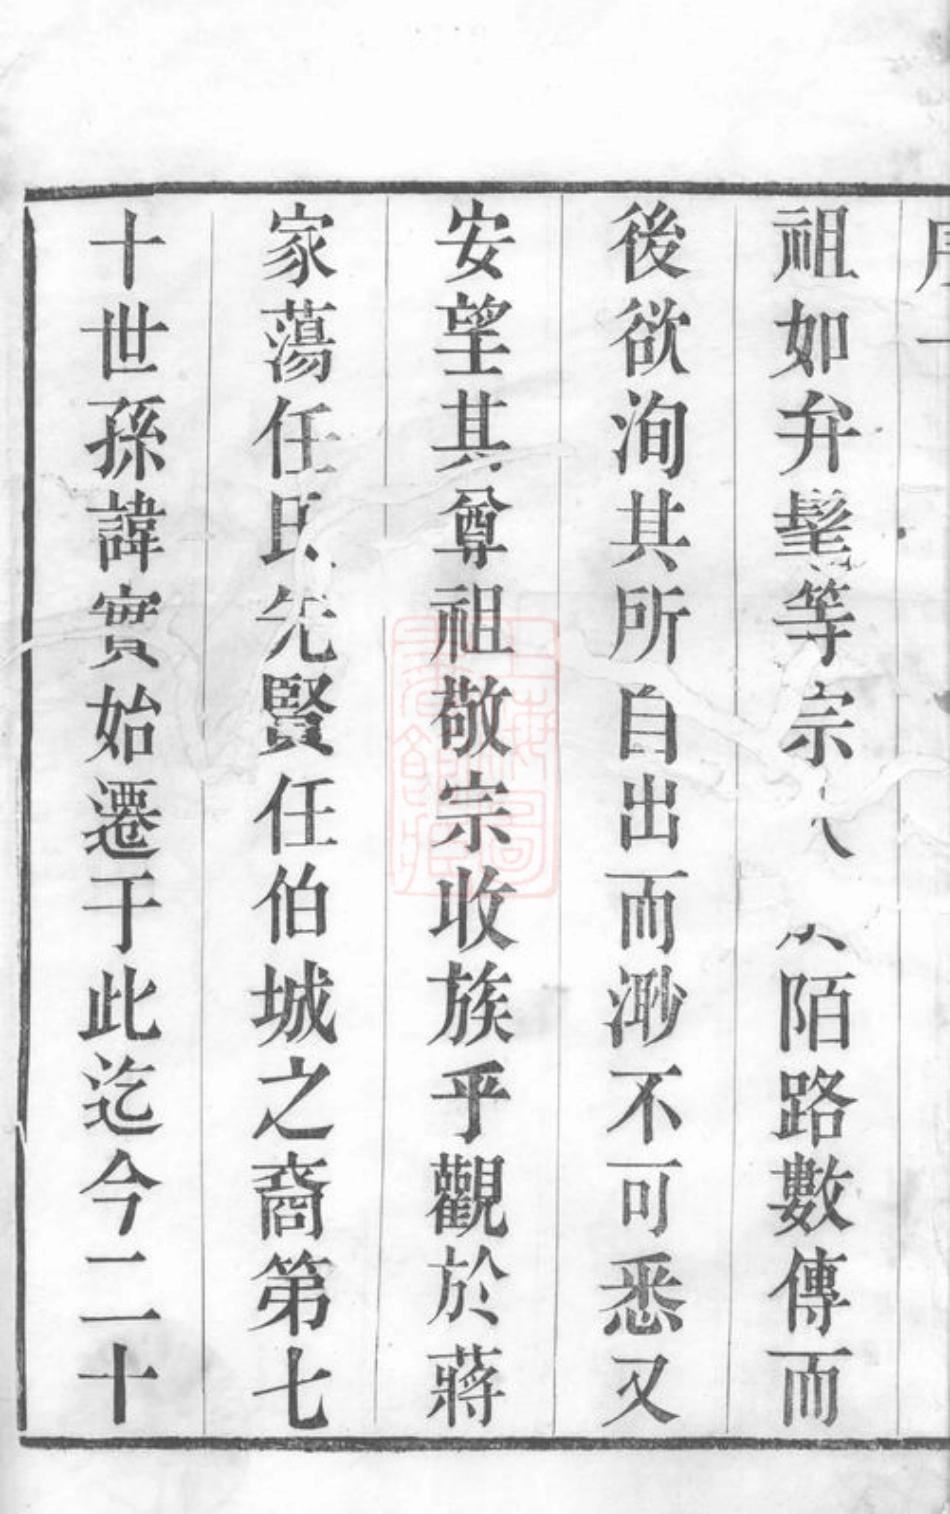 祖如弁髦等宗陌路數傳而
後欲洵其所自出而渺不可悉又
安望其尊祖敬宗收族乎觀於蔣
家蕩任氏先賢任伯城之裔第七
十世孫諱實始遷于此迄今二十